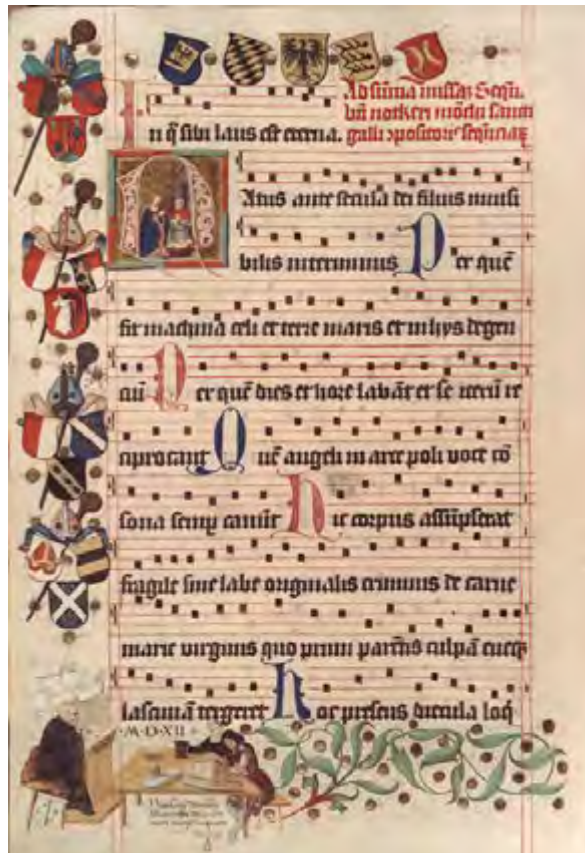 Ad sũma missaz Sequ.
notkeri mõchi sancti
galli
In q̃ sibi laus est eterna.
Natus ante secula dei filius inuisi
bilis interminus Per quẽ
fit machina celi et terre maris et in hys degen
ciũ Per quẽ dies et hore labãt et se iterũ re
ciprocant Quẽ angeli in arce poli voce cõ
sona semp canũt Hic corpus assũpserat
fragile sine labe originalis criminis de carne
marie virginis quo primi parẽtis culpã eueq;
lasciuiã tergeret Hoc presens diecula loq̃
·M·D·XII·